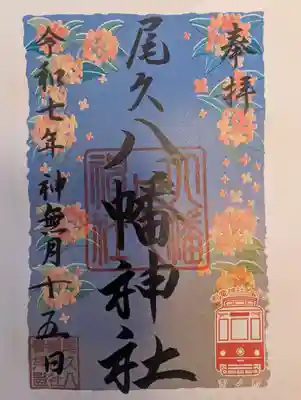 奉拝
尾久八幡神社
令和七年神無月十五日